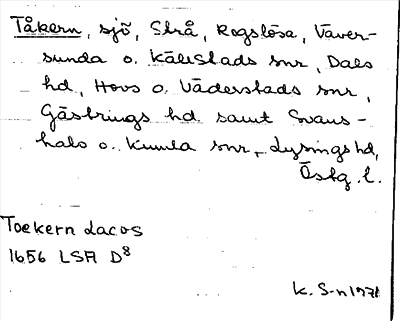 Tåkern, sjö, Strå, Rogslösa, Väver-
sunda o. Källstads snr, Dals
hd, Hovs o. Väderstads snr,
Gästrings hd samt Svans-
hals o. Kumla snr, Lysings hd,
Östg. l.
Toekern Lacos
1656 LSA D8
K. S-n 1971